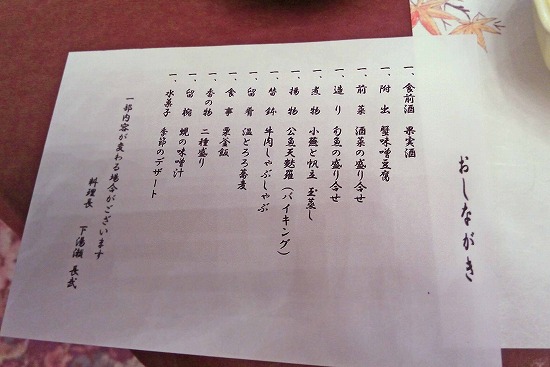 おしながき
一、食前酒 果実酒
一、附出 蟹味噌豆腐
一、前菜 酒菜の盛り合せ
一、造り 旬魚の盛り合せ
一、煮物 小蕪と帆立 玉蒸し
一、揚物 公魚天麩羅（バイキング）
一、替鉢 牛肉しゃぶしゃぶ
一、留肴 温とろろ蕎麦
一、食事 栗釜飯
一、香の物 二種盛り
一、留椀 蜆の味噌汁
一、水菓子 季節のデザート
一部内容が変わる場合がございます
料理長 下湯瀬 長武